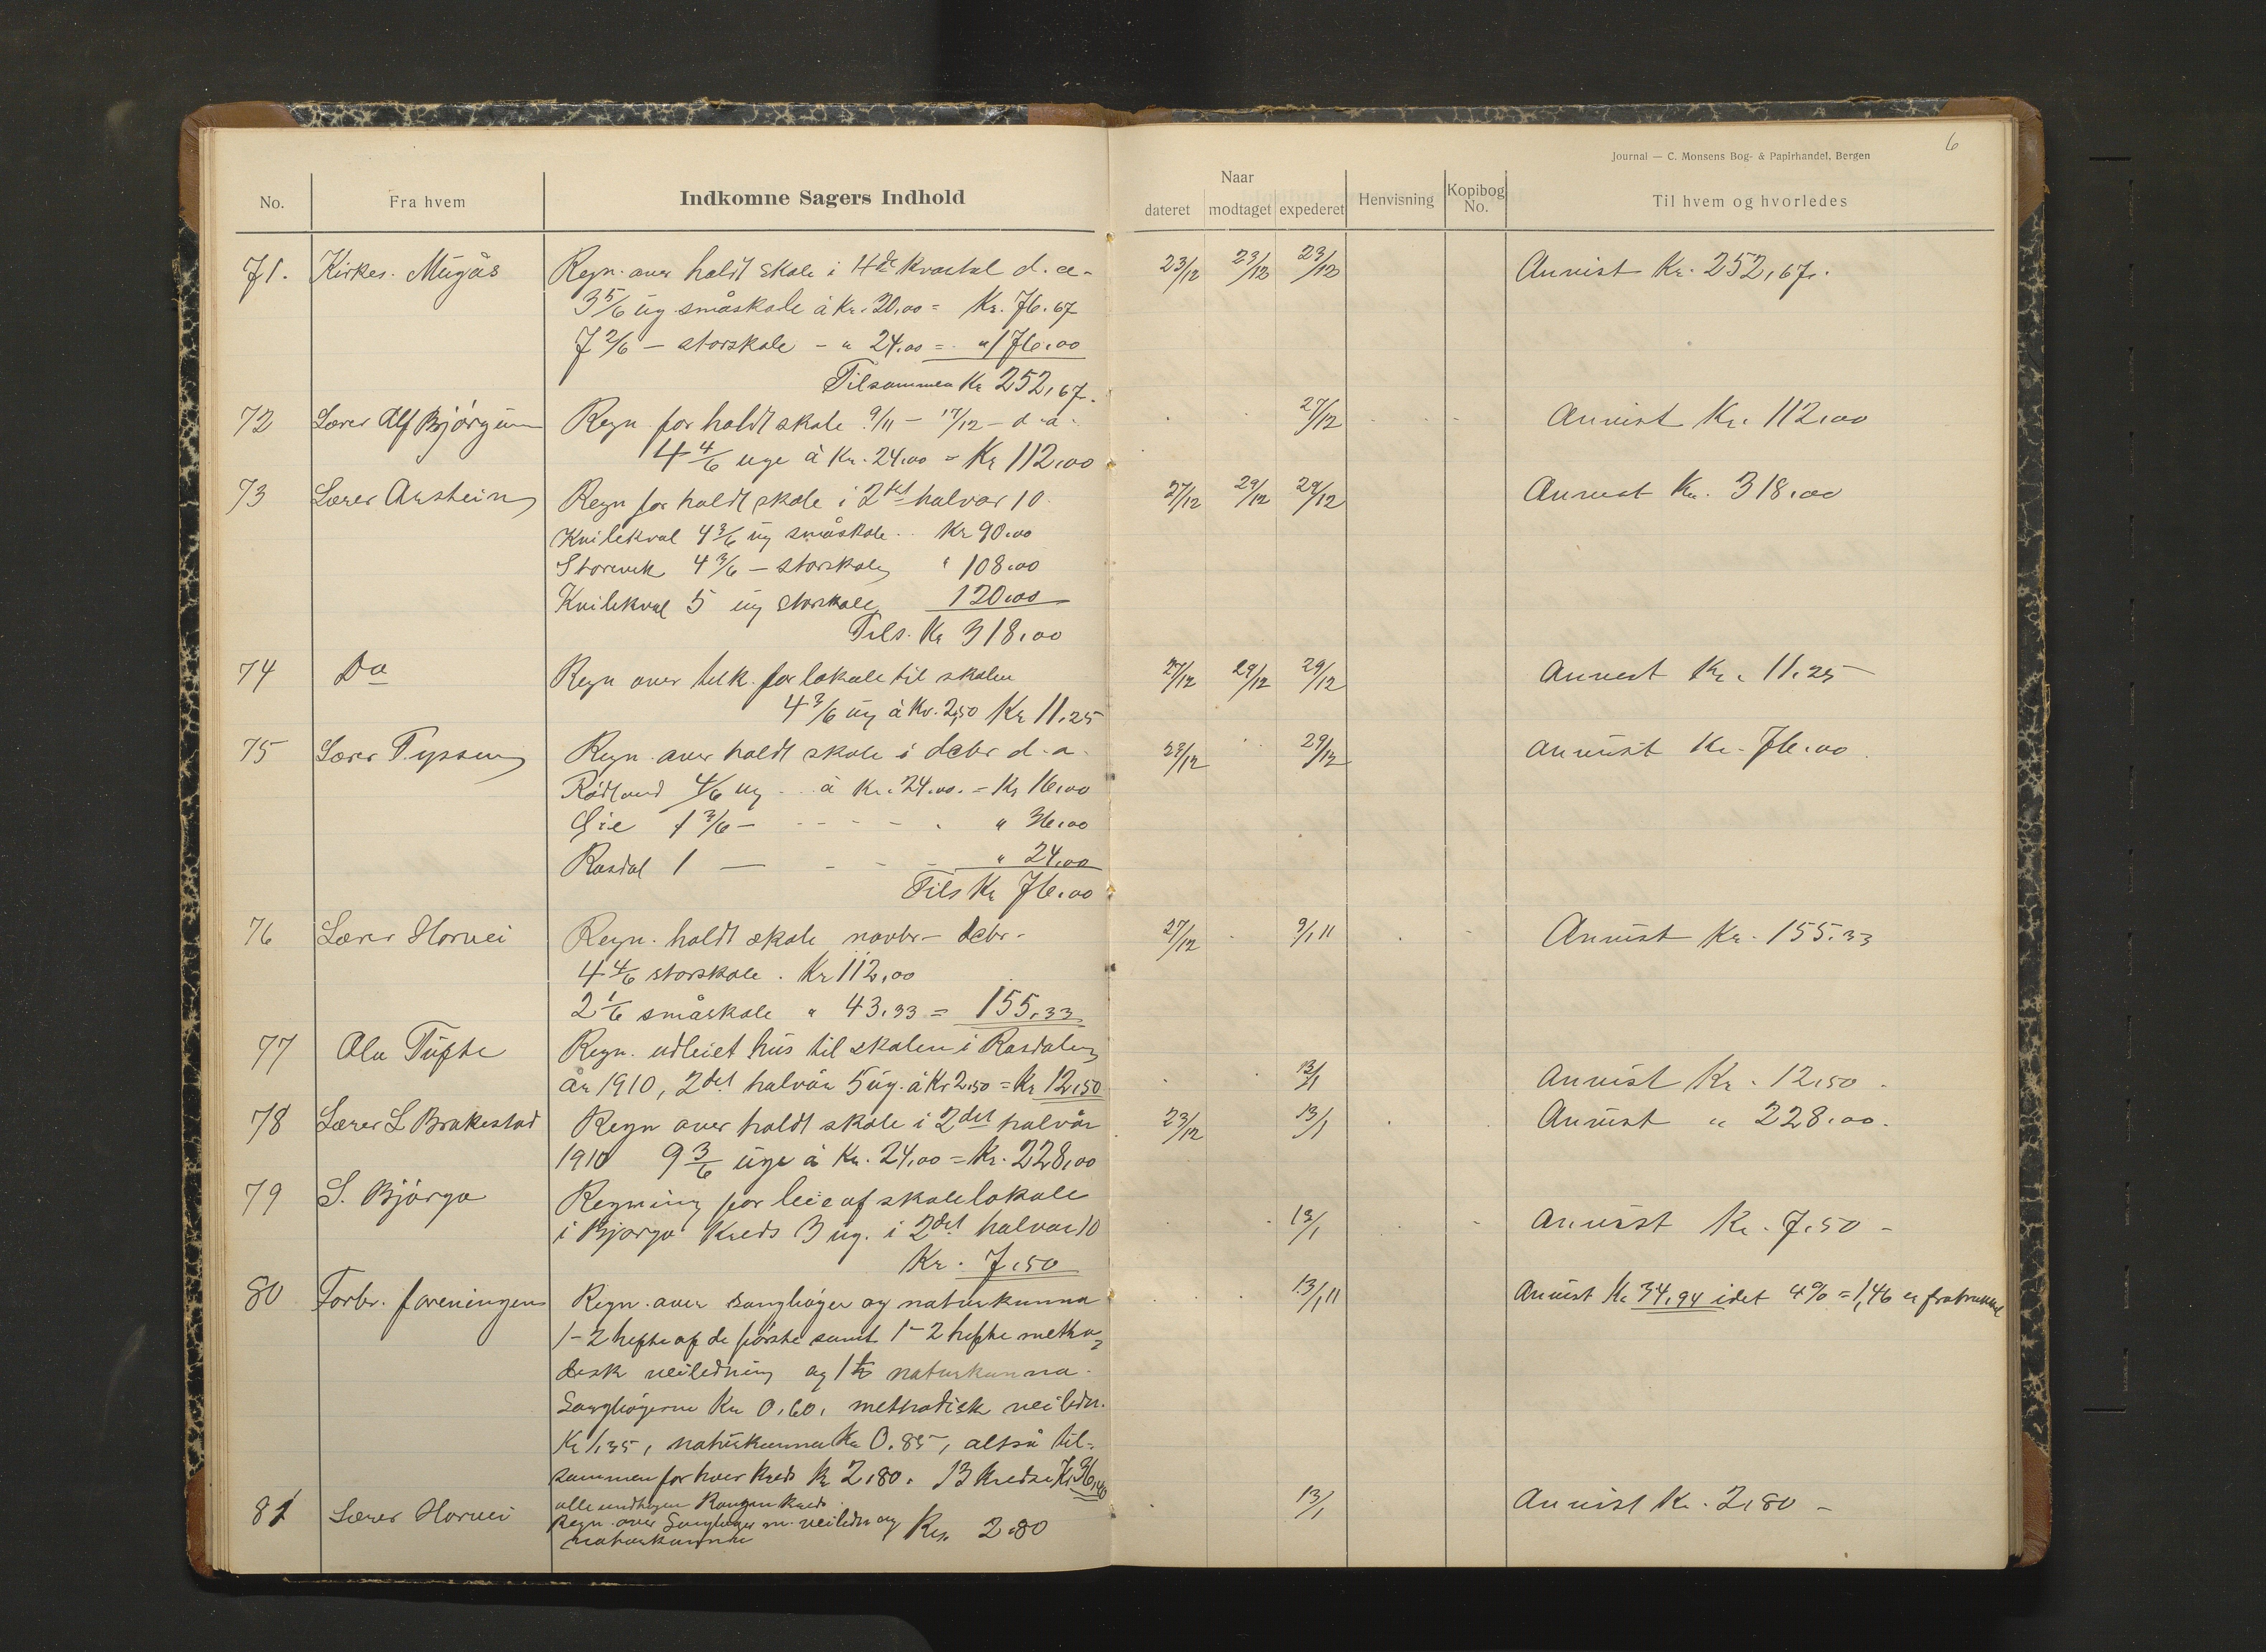 6
Journal — C. Monsens Bog- & Papirhandel, Bergen
No. Fra hvem Indkomne Sagers Indhold
Naar
dateret modtaget expederet Henvisning Kopibog No. Til hvem og hvorledes
71. Kirkes. Mugås Regn. over holdt skole i 4de kvartal d.a. 23/12 23/12 23/12 Anvist Kr. 252,67.
3 5/6 ug. småskole à Kr. 20,00 = Kr. 76.67
7 2/6 — storskole - " 24.00 = " 176.00
Tilsammen Kr 252,67.
72 Lærer Alf Bjørgum Regn for holdt skole 9/11 - 17/12 - d.a. 27/12 Anvist Kr. 112,00
4 4/6 uge à Kr. 24,00 = Kr 112,00
73 Lærer Arnstein Regn for holdt skole i 2det halvår 10. 27/12 29/12 29/12 Anvist Kr. 318,00
Kvilekval 4 3/6 ug småskole .. Kr 90.00
Storevik 4 3/6 — storskole " 108.00
Kvilekval 5 ug storskole 120.00
Tils. Kr 318,00
74 Do Regn over for lokale til skolen 27/12 29/12 29/12 Anvist Kr. 11.25
4 3/6 ug à Kr. 2,50 Kr 11.25
75 Lærer Tyssen Regn. over holdt skole i debr d.a. 29/12 Anvist Kr. 76.00
Rødland 4/6 ug .. à Kr. 24.00. = Kr 16.00
1 3/6 — " 36.00
Rasdal 1 — " 24.00
Tils Kr 76.00
76 Lærer Horvei Regn. holdt skole novbr - debr. 27/12 9/1 11 Anvist Kr. 155.33
4 4/6 storskole . Kr 112,00
2 1/6 småskole " 43,33 = 155,33
77 Ola Tufte Regn. udleiet hus til skolen i Rasdalen
år 1910, 2det halvår 5 ug. à Kr 2,50 = Kr 12,50 13/1 Anvist Kr. 12,50 -
78 Lærer L Brakestad Regn over holdt skole i 2det halvår 23/12 13/1 Anvist " 228,00.
1910 9 3/6 uge à Kr. 24,00 = Kr. 228,00
79 S. Bjørgo Regning for leie af skolelokale
i Bjørgo Kreds 3 ug. i 2det halvår 10 13/1 Anvist Kr. 7.50 -
Kr. 7,50
80 Forbr. foreningen Regn. over sangbøger og naturkunna 13/1 11 Anvist Kr 34,94 idet 4% = 1,46 er fratrukket
1-2 hefte af de første samt 1-2 hefte metho-
disk veiledning og 1 naturkunna.
Sangbøgerne Kr 0,60, methodisk veiledn.
Kr 1,35, naturkunna Kr 0.85, altså til-
sammen for hver kreds Kr 2,80. 13 kredse Kr 36,40
alle undtagen kreds.
81 Lærer Horvei Regn. over Sangbøger m. veiledn og Kr. 2.80 13/1 Anvist Kr. 2,80 -
naturkunna